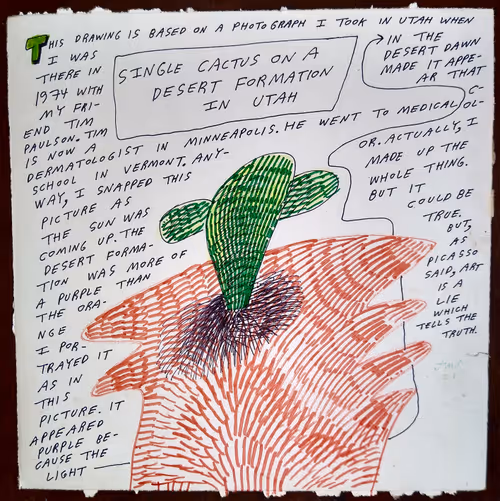 SINGLE CACTUS ON A
DESERT FORMATION
IN UTAH
THIS DRAWING IS BASED ON A PHOTOGRAPH I TOOK IN UTAH WHEN
I WAS
THERE IN
1974 WITH
MY FRI-
END TIM
PAULSON. TIM
IS NOW A
DERMATOLOGIST IN MINNEAPOLIS. HE WENT TO MEDICAL
SCHOOL IN VERMONT. ANY-
WAY, I SNAPPED THIS
PICTURE AS
THE SUN WAS
COMING UP. THE
DESERT FORMA-
TION WAS MORE OF
A PURPLE THAN
THE ORA-
NGE
I POR-
TRAYED IT
AS IN
THIS
PICTURE. IT
APPEARED
PURPLE BE-
CAUSE THE
LIGHT
IN THE
DESERT DAWN
MADE IT APPE-
AR THAT
C-
OL-
OR. ACTUALLY, I
MADE UP THE
WHOLE THING.
BUT IT
COULD BE
TRUE.
BUT,
AS
PICASSO
SAID, ART
IS A
LIE
WHICH
TELLS THE
TRUTH.